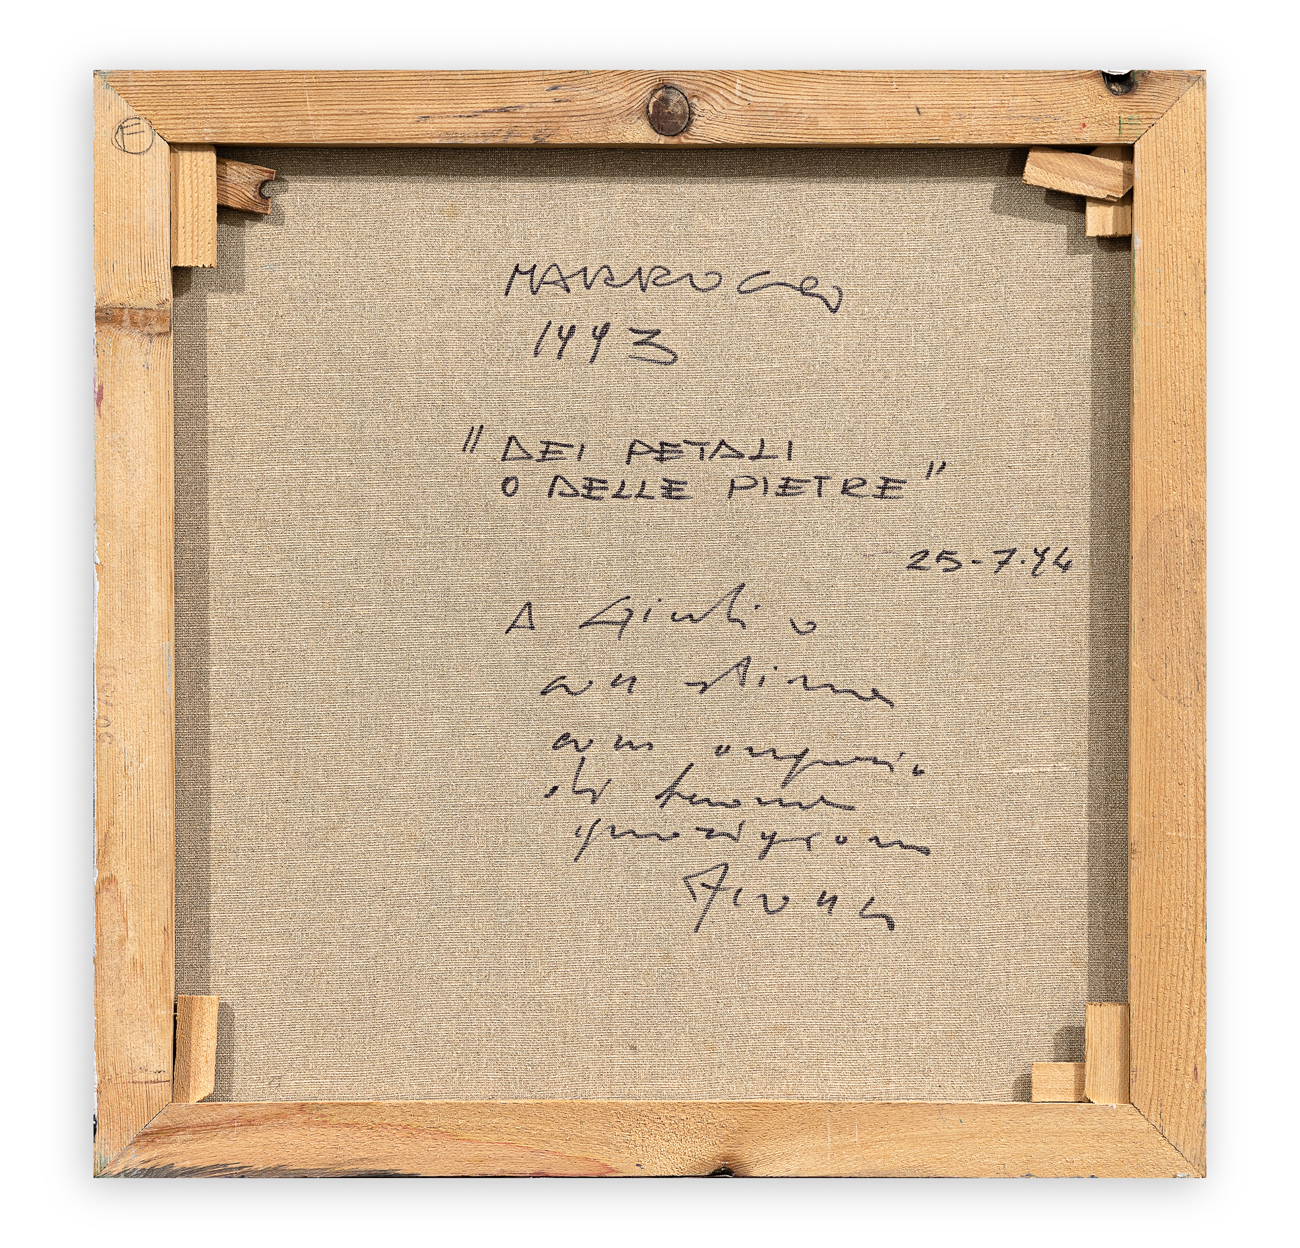 E
MARROCCO
1993
"DEI PETALI
O DELLE PIETRE"
25-7.94
A Giulio
con stima
con augurio
di buona
guarigione
Armando
50x50